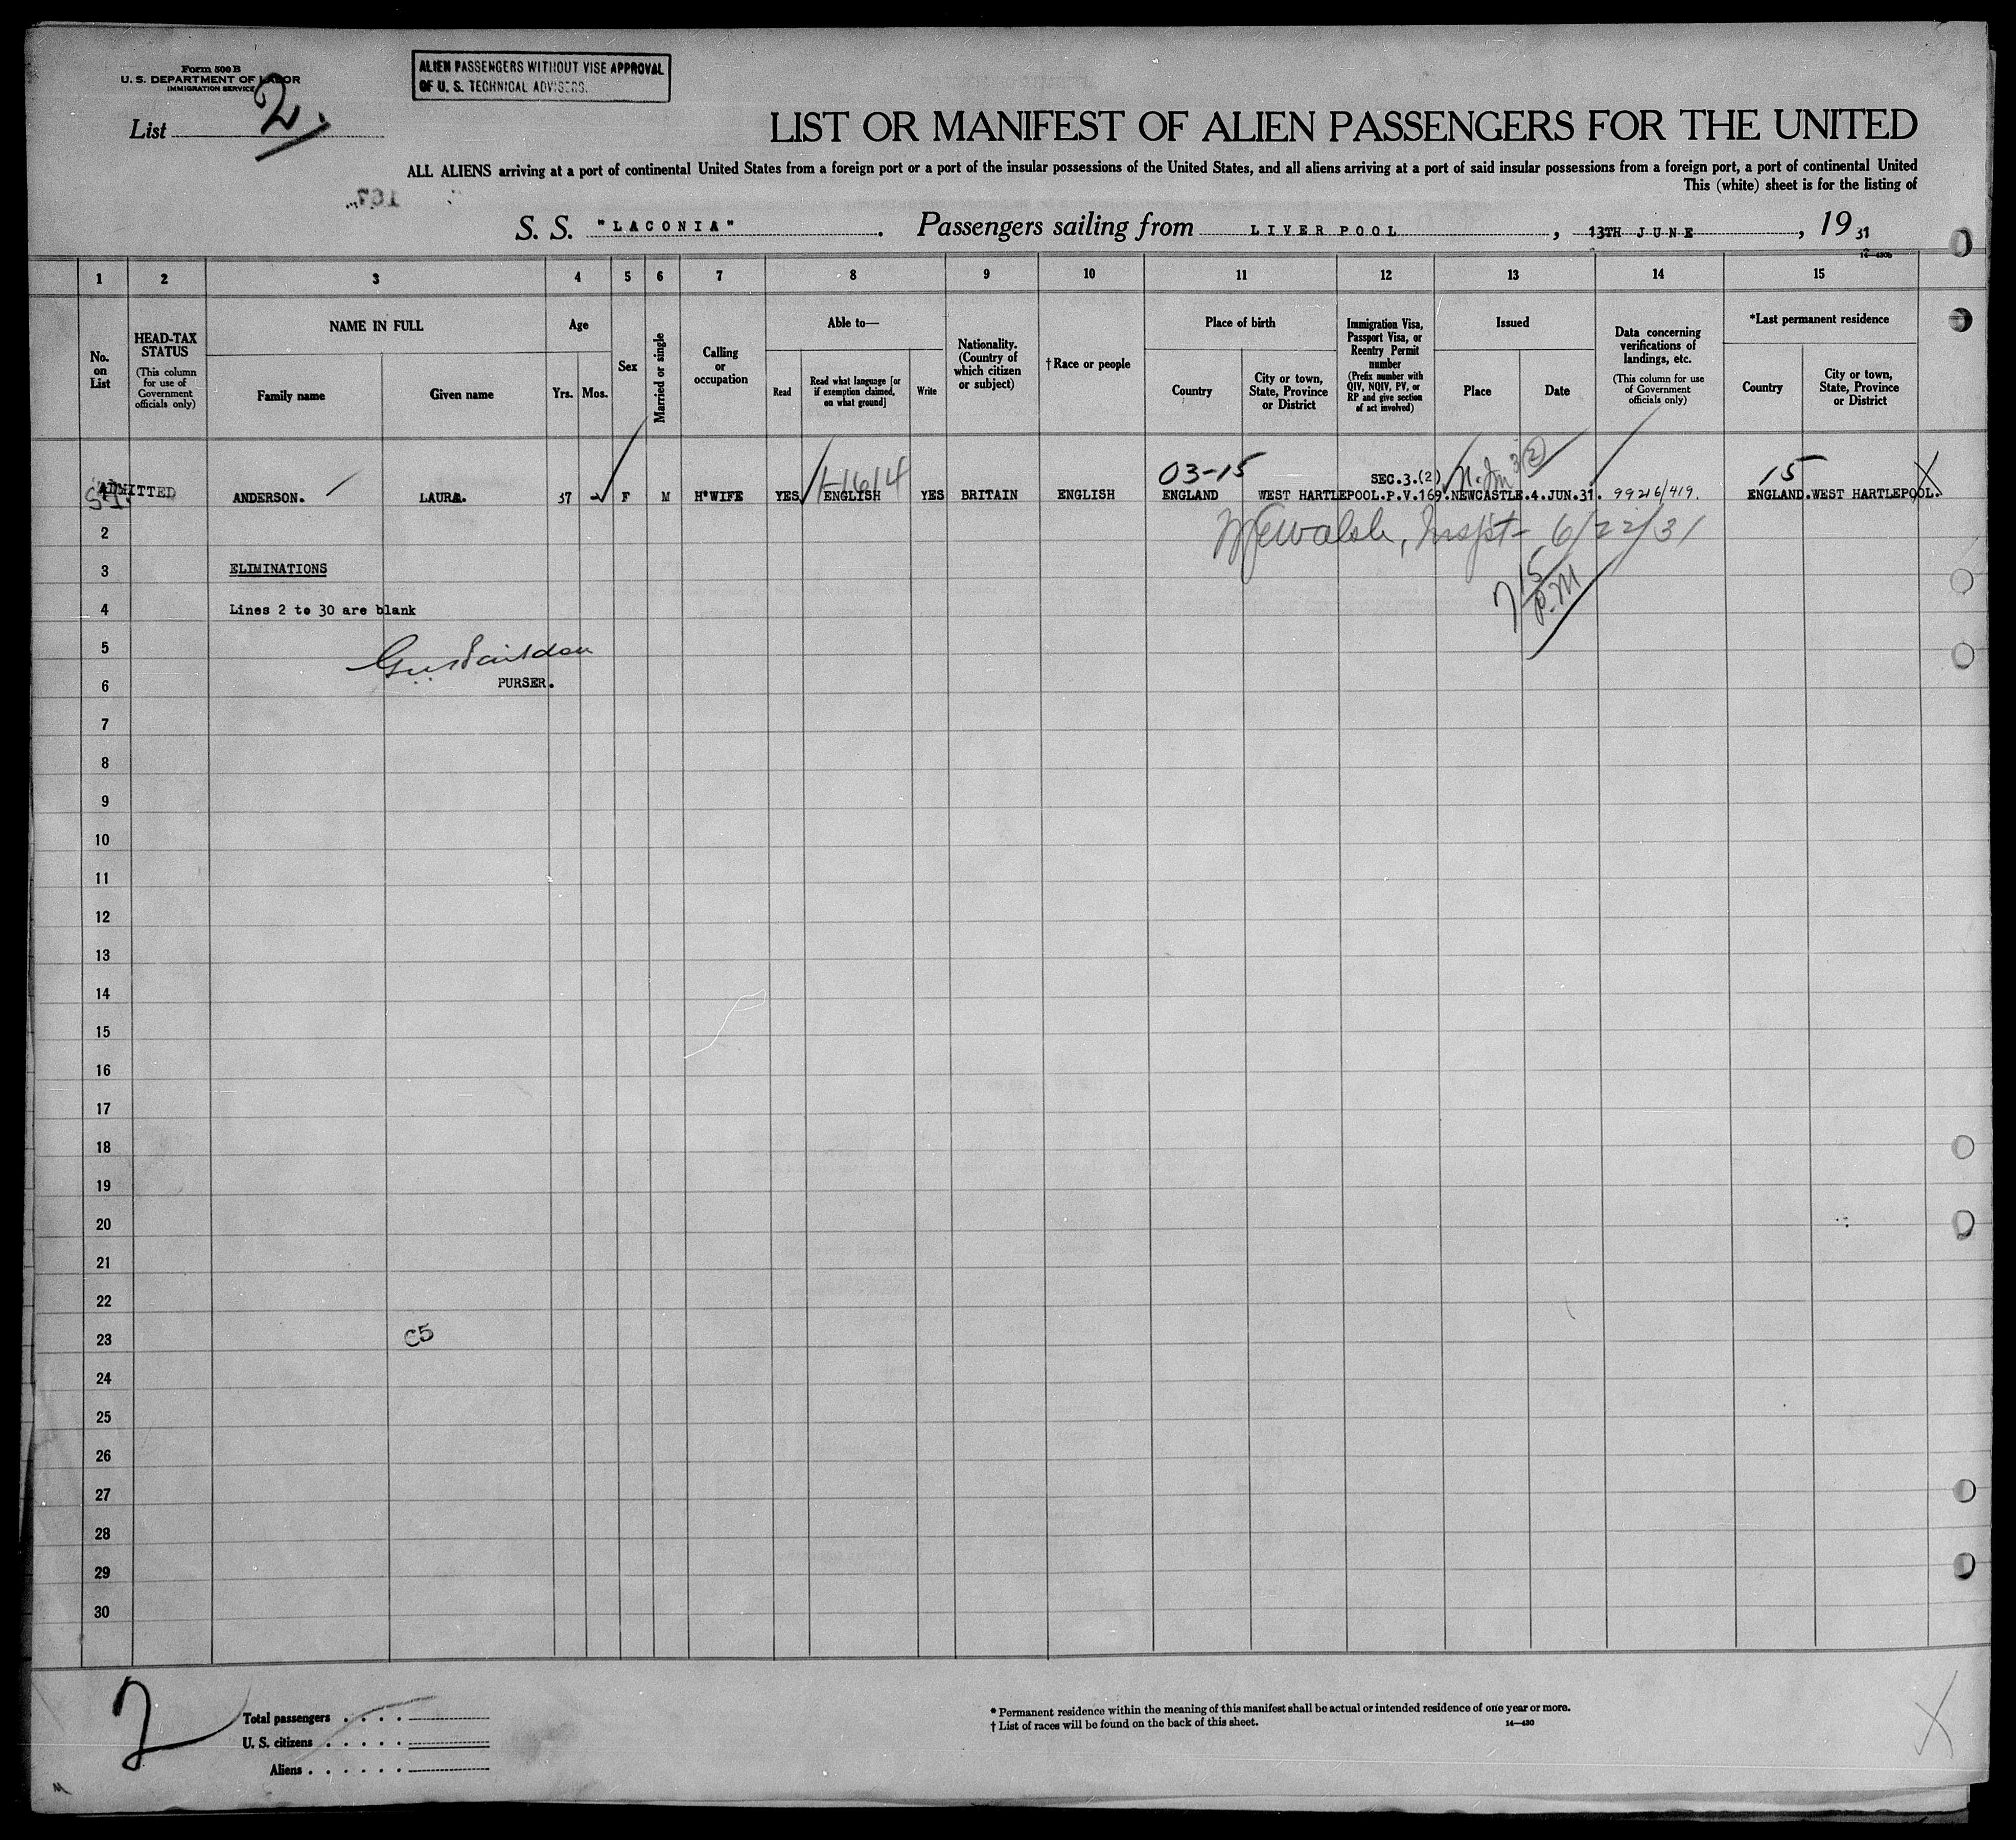 Form 500 B
U. S. DEPARTMENT OF LABOR
IMMIGRATION SERVICE
ALIEN PASSENGERS WITHOUT VISE APPROVAL
OF U. S. TECHNICAL ADVISERS.
List 2.
LIST OR MANIFEST OF ALIEN PASSENGERS FOR THE UNITED
ALL ALIENS arriving at a port of continental United States from a foreign port or a port of the insular possessions of the United States, and all aliens arriving at a port of said insular possessions from a foreign port, a port of continental United
This (white) sheet is for the listing of
167
S. S. "LACONIA". Passengers sailing from LIVERPOOL, 13TH JUNE, 19 31
14—430b
1 2 3 4 5 6 7 8 9 10 11 12 13 14 15
No. on List
HEAD-TAX STATUS
(This column for use of Government officials only)
NAME IN FULL
Family name
Given name
Age
Yrs. Mos.
Sex
Married or single
Calling or occupation
Able to—
Read
Read what language [or if exemption claimed, on what ground]
Write
Nationality. (Country of which citizen or subject)
†Race or people
Place of birth
Country
City or town, State, Province or District
Immigration Visa, Passport Visa, or Reentry Permit number
(Prefix number with QIV, NQIV, PV, or RP and give section of act involved)
Issued
Place
Date
Data concerning verifications of landings, etc.
(This column for use of Government officials only)
*Last permanent residence
Country
City or town, State, Province or District
1-1614 03-15 SEC.3.(2) 15
ADMITTED ANDERSON. LAURA. 37 - F M H'WIFE YES ENGLISH YES BRITAIN ENGLISH ENGLAND WEST HARTLEPOOL.P.V.169.NEWCASTLE.4.JUN.31. 99216/419. ENGLAND.WEST HARTLEPOOL.
2 Walsh, Inspt- 6/22/31
3 ELIMINATIONS
7 15 P.M
4 Lines 2 to 30 are blank
5
6 PURSER.
7
8
9
10
11
12
13
14
15
16
17
18
19
20
21
22
23 C5
24
25
26
27
28
29
30
2
Total passengers . . . .
U. S. citizens . . . . .
Aliens . . . . . .
* Permanent residence within the meaning of this manifest shall be actual or intended residence of one year or more.
† List of races will be found on the back of this sheet.
14—430